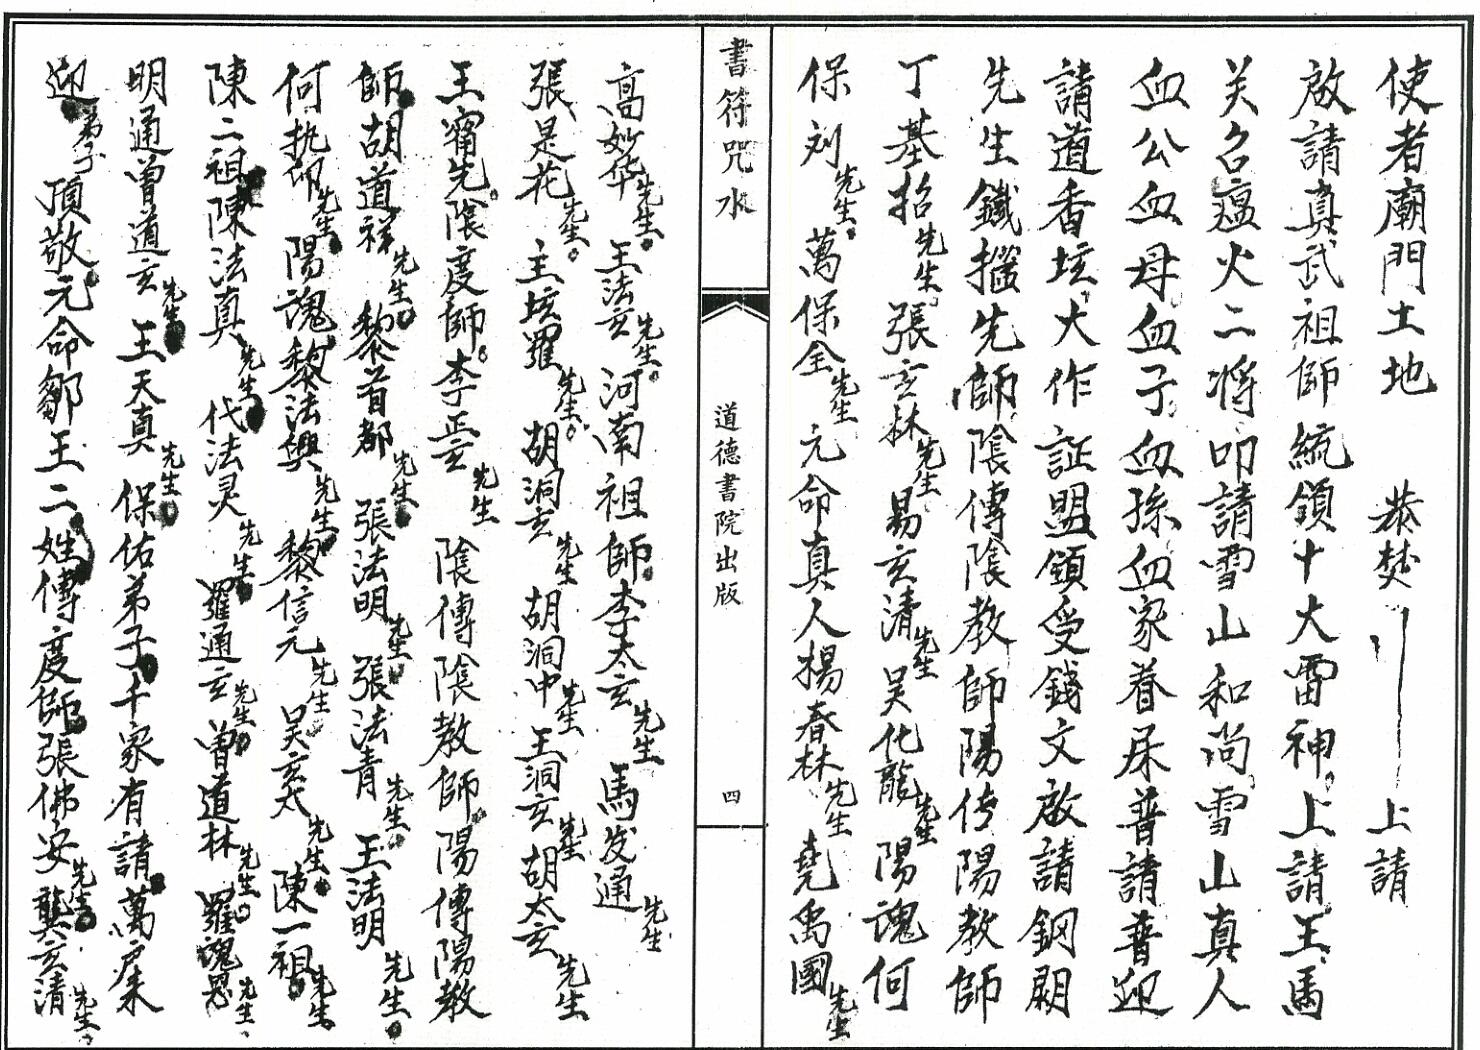 使者廟門土地 恭焚 上請
啟請真武祖師統領十大雷神上請王馬
关召瘟火二将叩請雪山和尚雪山真人
血公血母血子血孫血家眷屎普請普迎
請道香坛大作証盟領受錢文啟請鋼
先生鐵 先師陰傳陰教師陽传陽教師
丁基招先生張玄林先生易玄清先生吴化龍先生陽魂何
保刘先生萬保全先生元命真人楊春林先生堯禹國先生
書符咒水
道德書院出版
四
高妙华先生王法玄先生河南祖師李太玄先生馬发通先生
張是花先生主坛羅先生胡洞玄先生胡洞中先生王洞玄先生胡太玄先生
王甯先陰度師李正玄先生陰傳陰教師陽傳陽教
師胡道祥先生黎首都先生張法明先生張法青先生王法明先生
何执印先生陽魂黎法興先生黎信元先生吴玄太先生陳一祖先生
陳二祖陳法真先生代法灵先生羅通玄先生曾道林先生羅魂恩先生
明通曾道玄先生王天真先生保佑弟子千家有請萬户来
迎弟子頂敬元命鄒王二姓傳度師張佛安先生龔玄清先生